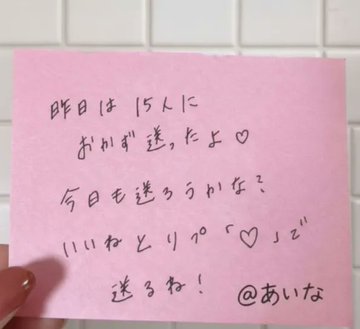 昨日は15人に
おかず送ったよ♡
今日も送ろうかな?
いいねとリプ「♡」で
送るね!
@あいな